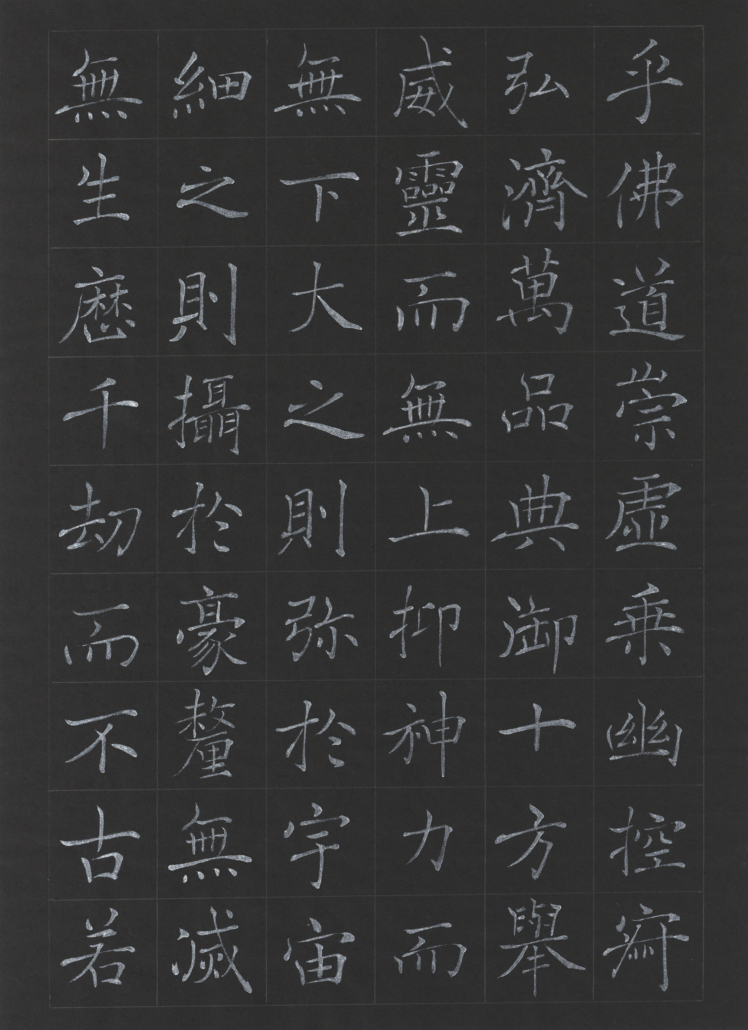 乎佛道崇虛乘幽控寂
弘濟萬品典御十方舉
威靈而無上抑神力而
無下大之則弥於宇宙
細之則攝於豪釐無滅
無生歷千劫而不古若